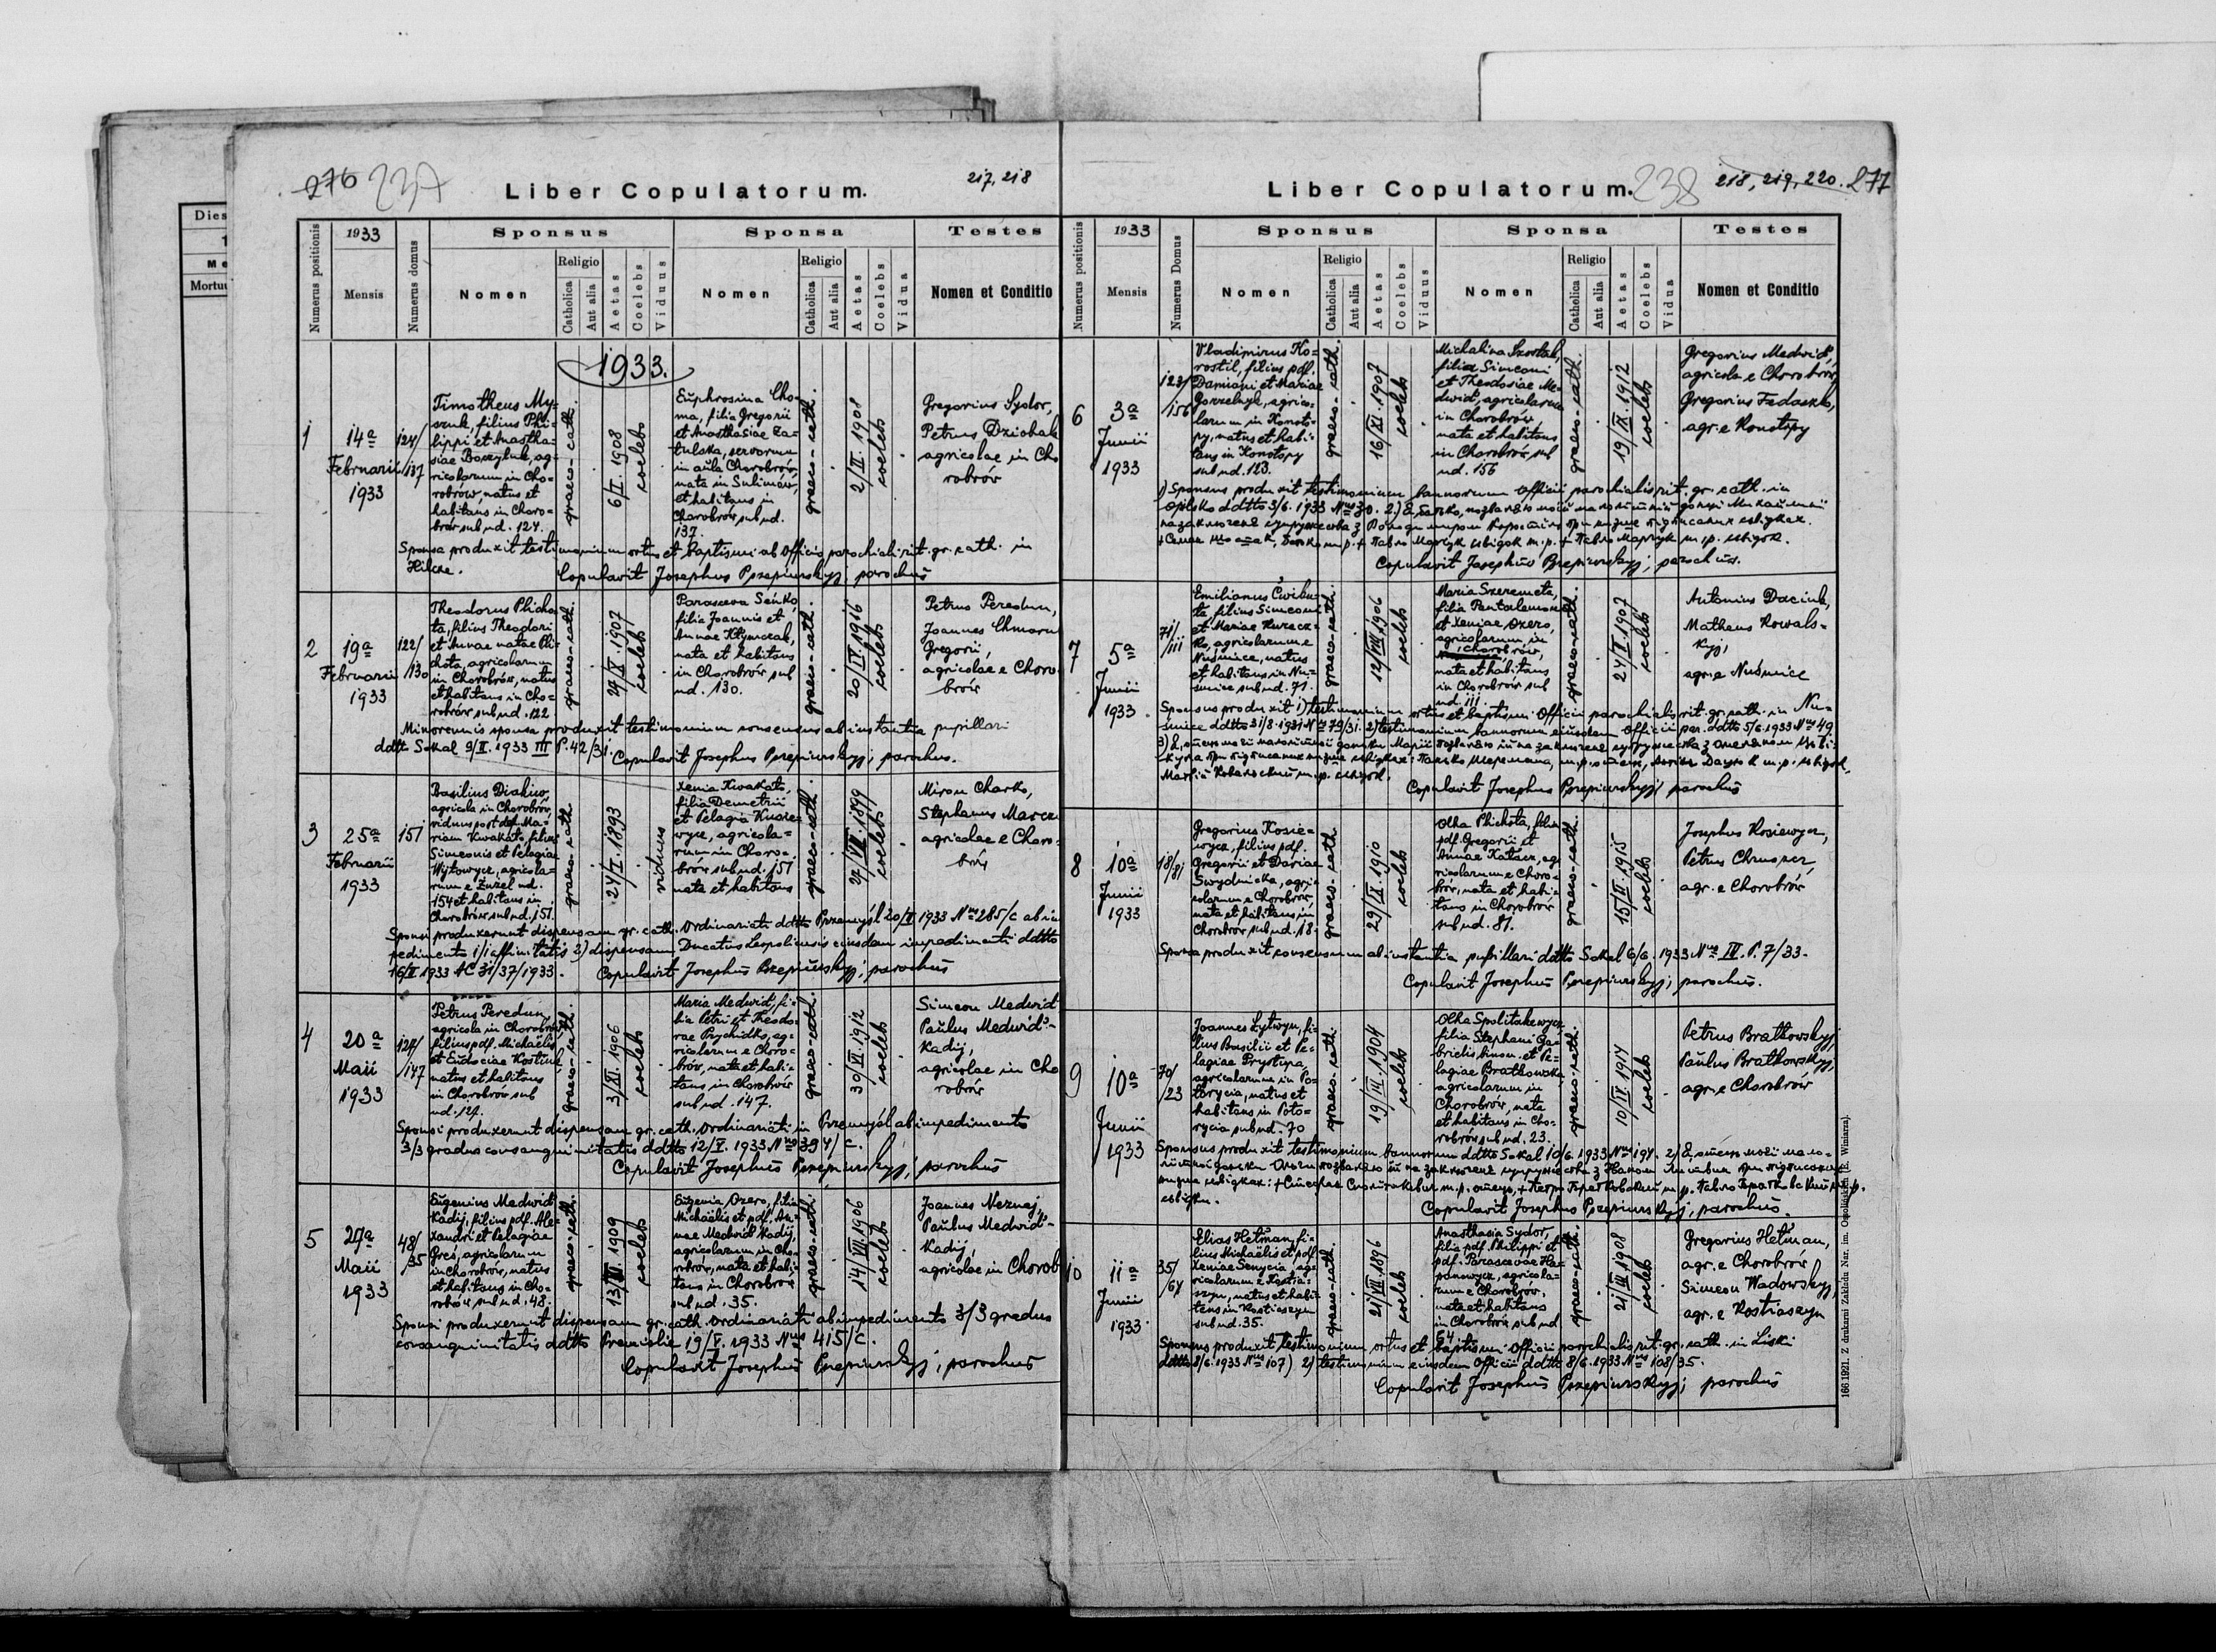 276 237
Liber Copulatorum.
217, 218
Numerus positionis
1933
Mensis
Numerus domus
Sponsus
Nomen
Religio
Catholica
Aut alia
Aetas
Coelebs
Viduus
Sponsa
Nomen
Religio
Catholica
Aut alia
Aetas
Coelebs
Vidua
Testes
Nomen et Conditio
1933.
1
14a
Februarii
1933
124/
137
Timotheus My-
szuk, filius Phi-
lippi et Anastha-
siae Baszyluk, ag-
ricolarum in Cho-
robrów, natus et
habitans in Choro-
brów sub nd. 124.
graeco-cath.
6/I. 1908
coelebs
Euphrosina Cho-
ma, filia Gregorii
et Anasthasiae Za-
tulska, servorum
in aula Chorobrów,
nata in Sulimów,
et habitans in
Chorobrów sub nd.
137.
graeco-cath.
2/II. 1908
coelebs
Gregorius Sydor,
Petrus Dziobak
agricolae in Cho
robrów
Sponsa produxit testimonium ortus et baptismi ab Officio parochiali rit. gr. cath. in
Hilcze.
Copulavit Josephus Przepiurskyj, parochus
2
19a
Februarii
1933
122/
130
Theodorus Plicho-
ta, filius Theodori
et Annae natae Pli-
chota, agricolarum
in Chorobrów, natus
et habitans in Cho-
robrów sub nd. 122
graeco-cath.
27/II. 1907
coelebs
Parasceva Seńko,
filia Joannis et
Annae Klymczak,
nata et habitans
in Chorobrów sub
nd. 130.
graeco-cath.
20/IV. 1916
coelebs
Petrus Peredun,
Joannes Chmaru
Gregorii,
agricolae e Choro-
brów
Minorennis sponsa produxit testimonium consensus ab instantia pupillari
ddtt Sokal 9/II. 1933 III P. 42/31.
Copulavit Josephus Przepiurskyj, parochus.
3
25a
Februarii
1933
151
Basilius Diakiw,
agricola in Chorobrów,
viduus post def. Ma-
riam Kwakato, filius
Simeonis et Pelagiae
Wijtowycz, agricola-
rum e Żużel nd.
154 et habitans in
Chorobrów sub nd. 151.
graeco-cath.
24/I. 1893
viduus
Xenia Kwakato,
filia Demetrii
et Pelagia Kuore-
wycz, agricola-
rum in Choro-
brów sub nd. 151
nata et habitans
graeco-cath.
27/VII. 1899
coelebs
Miron Charko,
Stephanus Marcu
agricolae e Choro-
brów
Sponsi produxerunt dispensam gr. cath. Ordinariati ddtto Przemyśl 20/II 1933 Nus 285/c ab im
pedimento 1/1 affinitatis 2) dispensam Ducatus Leopoliensis eiusdem impedimenti ddtto
16/II 1933 AC 31/37/1933.
Copulavit Josephus Przepiurskyj, parochus
4
20a
Maii
1933
127/
147
Petrus Peredun,
agricola in Chorobrów,
filius pdf. Michaëlis
et Eudociae Kostiuk,
natus et habitans
in Chorobrów sub
nd. 127.
graeco-cath.
3/XI. 1906
coelebs
Maria Medwid, fi-
lia Petri et Theodo-
rae Prychidko, ag-
ricolarum e Choro-
brów, nata et habi-
tans in Chorobrów
sub nd. 147.
graeco-cath.
30/III. 1912
coelebs
Simeon Medwid
Paulus Medwid'-
Kadij,
agricolae in Cho
robrów
Sponsi produxerunt dispensam gr. cath. Ordinariati in Przemyśl ab impedimento
3/3 gradus consanguinitatis ddtto 12/V. 1933 Nus 394/c.
Copulavit Josephus Przepiurskyj, parochus
5
27a
Maii
1933
48/
35
Eugenius Medwid
Kadij, filius pdf. Ale-
xandri et Pelagiae
Greś, agricolarum
in Chorobrów, natus
et habitans in Cho-
robrów sub nd. 48.
graeco-cath.
13/III 1909
coelebs
Eugenia Ozero, filia
Michaëlis et pdf. An-
nae Medwid Kadij,
agricolarum in Cho-
robrów, nata et habi-
tans in Chorobrów
sub nd. 35.
graeco-cath.
14/III. 1906
coelebs
Joannes Neznaj,
Paulus Medwid'-
Kadij,
agricolae in Chorob
Sponsi produxerunt dispensam gr. cath. Ordinariati ab impedimento 3/3 gradus
consanguinitatis ddtto Premislie 19/V. 1933 Nus 415/c.
Copulavit Josephus Przepiurskyj, parochus
Liber Copulatorum.
238 218, 219, 220. 277
Numerus positionis
1933
Mensis
Numerus Domus
Sponsus
Nomen
Religio
Catholica
Aut alia
Aetas
Coelebs
Viduus
Sponsa
Nomen
Religio
Catholica
Aut alia
Aetas
Coelebs
Vidua
Testes
Nomen et Conditio
6
3a
Junii
1933
123/
156
Vladimirus Ko-
rostil, filius pdf.
Damiani et Mariae
Gorzelnyk, agrico-
larum in Konoto-
py, natus et habi-
tans in Konotopy
sub nd. 123.
graeco-cath.
16/XI. 1907
coelebs
Michalina Szostak,
filia Simeoni
et Theodosiae Me-
dwid, agricolarum
in Chorobrów,
nata et habitans
in Chorobrów sub
nd. 156
graeco-cath.
19/IX. 1912
coelebs
Gregorius Medwid',
agricola e Chorobrów
Gregorius Fedaszko,
agr. e Konotopy
1) Sponsus produxit testimonium bannorum Officii parochialis rit. gr. cath. in
Opilsko ddtto 3/6. 1933 Nus 30. 2)
Copulavit Josephus Przepiurskyj, parochus.
7
5a
Junii
1933.
71/
111
Emilianus Ćwiku-
ta, filius Simeoni
et Mariae Kurecz-
ko, agricolarum e
Nuśmice, natus
et habitans in Nu-
śmice sub nd. 71.
graeco-cath.
12/VIII. 1906
coelebs
Maria Szeremeta,
filia Pantalemonis
et Xeniae Ozero,
agricolarum in
Chorobrów,
nata et habitans
in Chorobrów sub
nd. 111
graeco-cath.
24/V. 1907
coelebs
Antonius Daciuk,
Matheus Kowals-
kyj,
agr. e Nuśmice
Sponsus produxit 1) testimonium ortus et baptismi Officii parochialis rit. gr. cath. in Nu-
śmice ddtto 31/8. 1931 Nus 79/31. 2) testimonium bannorum eiusdem Officii par. ddtto 5/6. 1933 Nus 49
Copulavit Josephus Przepiurskyj, parochus
8
10a
Junii
1933
18/81
Gregorius Kosie-
wycz, filius pdf.
Gregorii et Dariae
Swydnicka, agri-
colarum e Chorobrów,
nata et habitans in
Chorobrów sub nd. 18.
graeco-cath.
29/IX. 1910
coelebs
Olha Plichota, filia
pdf. Gregorii et
Annae Katacz, ag-
ricolarum e Choro-
brów, nata et habi-
tans in Chorobrów
sub nd. 81.
graeco-cath.
15/II. 1915
coelebs
Josephus Kosiewycz,
Petrus Chruszcz,
agr. e Chorobrów
Sponsa produxit consensum ab instantia pupillari ddtto Sokal 6/6. 1933 Nus III. P. 7/33.
Copulavit Josephus Przepiurskyj, parochus.
9
10a
Junii
1933
70/
23
Joannes Lytwyn, fi-
lius Basilii et Pe-
lagiae Prystupa,
agricolarum in Po-
torycia, natus et
habitans in Poto-
rycia sub nd. 70
graeco-cath.
19/III. 1904
coelebs
Olha Spolitakewycz,
filia Stephani Ga-
brielis binom. et Pe-
lagiae Bratkowska,
agricolarum in
Chorobrów, nata
et habitans in Cho-
robrów sub nd. 23.
graeco-cath.
10/IV. 1914
coelebs
Petrus Bratkowskyj,
Paulus Bratkowskyj,
agr. e Chorobrów
Sponsus produxit testimonium bannorum ddtto Sokal 10/6. 1933 Nus 194. 2)
Copulavit Josephus Przepiurskyj, parochus.
10
11a
Junii
1933
35/
64
Elias Hetman, fi-
lius Michaëlis et pdf.
Xeniae Senycia, ag-
ricolarum e Kostia-
szyn, natus et habi-
tans in Kostiaszyn
sub nd. 35.
graeco-cath.
21/VII. 1896
coelebs
Anasthasia Sydor,
filia pdf. Philippi et
pdf. Parascevae Ha-
panowycz, agricola-
rum e Chorobrów,
nata et habitans
in Chorobrów sub nd.
64
graeco-cath.
21/III. 1908
coelebs
Gregorius Hetman,
agr. e Chorobrów
Simeon Wadowskyj,
agr. e Kostiaszyn
Sponsus produxit testimonium ortus et baptismi Officii parochialis rit. gr. cath. in Liski
ddtto 8/6. 1933 Nus 107) 2) testimonium eiusdem Officii ddtto 8/6. 1933 Nus 108/35.
Copulavit Josephus Przepiurskyj, parochus
166.1921. Z drukarni Zakładu Nar. im. Ossolińskich (E. Winiarza).
Dies
Mortuu